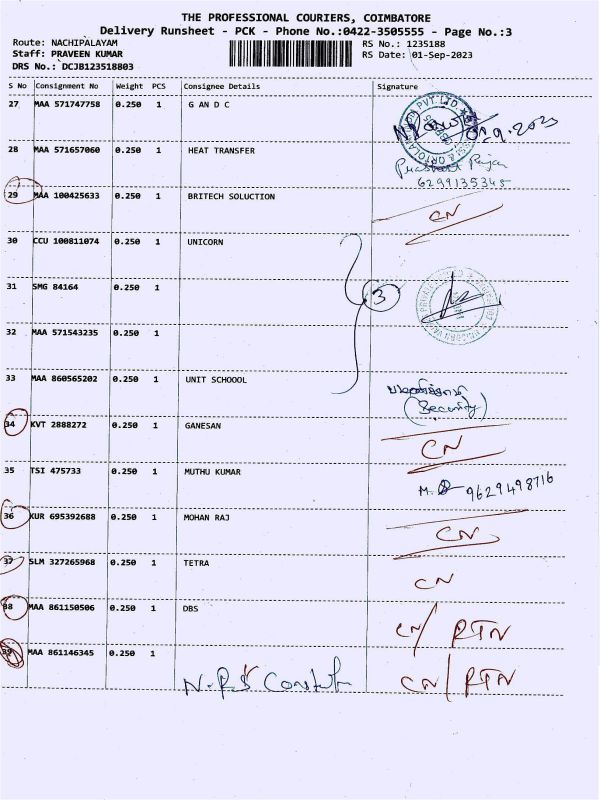 THE PROFESSIONAL COURIERS, COIMBATORE
Delivery Runsheet - PCK - Phone No.:0422-3505555 - Page No.:3
Route: NACHIPALAYAM RS No.: 1235188
Staff: PRAVEEN KUMAR RS Date: 01-Sep-2023
DRS No.: DCJB123518803
S No Consignment No Weight PCS Consignee Details Signature
27 MAA 571747758 0.250 1 G AND C
28 MAA 571657060 0.250 1 HEAT TRANSFER
6299135345
29 MAA 100425633 0.250 1 BRITECH SOLUCTION CN
30 CCU 100811074 0.250 1 UNICORN
31 SMG 84164 0.250 1 3
32 MAA 571543235 0.250 1
33 MAA 860565202 0.250 1 UNIT SCHOOOL
(Security)
34 KVT 2888272 0.250 1 GANESAN CN
35 TSI 475733 0.250 1 MUTHU KUMAR 9629498716
36 KUR 695392688 0.250 1 MOHAN RAJ CN
37 SLM 327265968 0.250 1 TETRA CN
38 MAA 861150506 0.250 1 DBS CN/ RTN
39 MAA 861146345 0.250 1 CN/ RTN